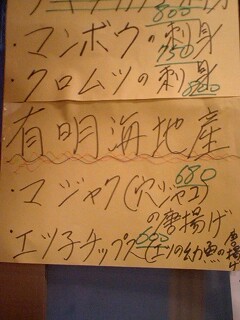 800
・マンボウの刺身
750
・クロムツの刺身
有明海地産
680
・マジャク(穴ジャコ)
の唐揚げ
・エツ子チップス(エツの幼魚の唐揚げ